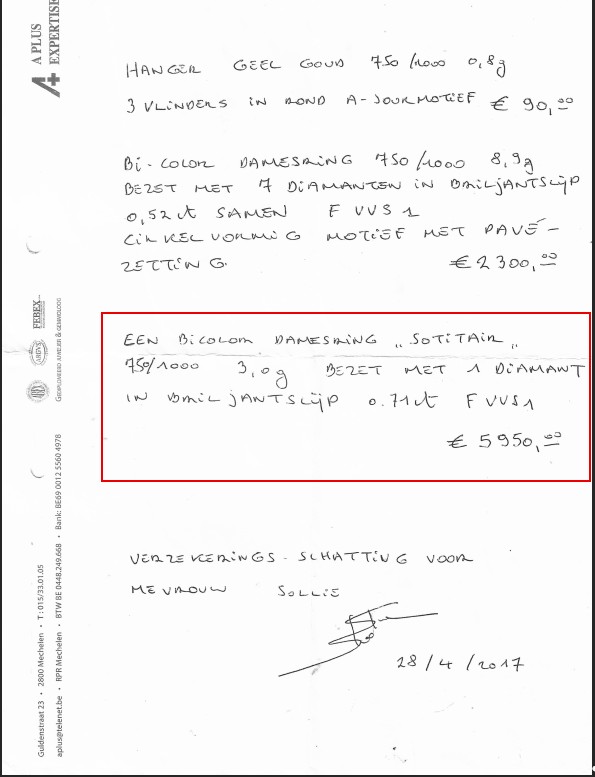 A PLUS
EXPERTISE
HANGER GEEL GOUD 750/1000 0,8g
3 VLINDERS IN ROND A-JOURMOTIEF € 90,00
Bi-COLOR DAMESRING 750/1000 8,9g
BEZET MET 7 DIAMANTEN IN BRILJANTSLIJP
0,52 ct SAMEN F VVS1
CIRKELVORMIG MOTIEF MET PAVÉ-
ZETTING. € 2300,00
EEN BICOLOR DAMESRING „SOTITAIR„
750/1000 3,0g BEZET MET 1 DIAMANT
IN BRILJANTSLIJP 0.71ct F VVS1
€ 5950,00
VERZEKERINGS-SCHATTING VOOR
MEVROUW SOLLIE
28/4/2017
FEBEX
GEDIPLOMEERD JUWELIER & GEMMOLOOG
Guldenstraat 23 • 2800 Mechelen • T : 015/33.01.05
aplus@telenet.be • RPR Mechelen • BTW BE 0448.249.668 • Bank: BE69 0012 5560 4978